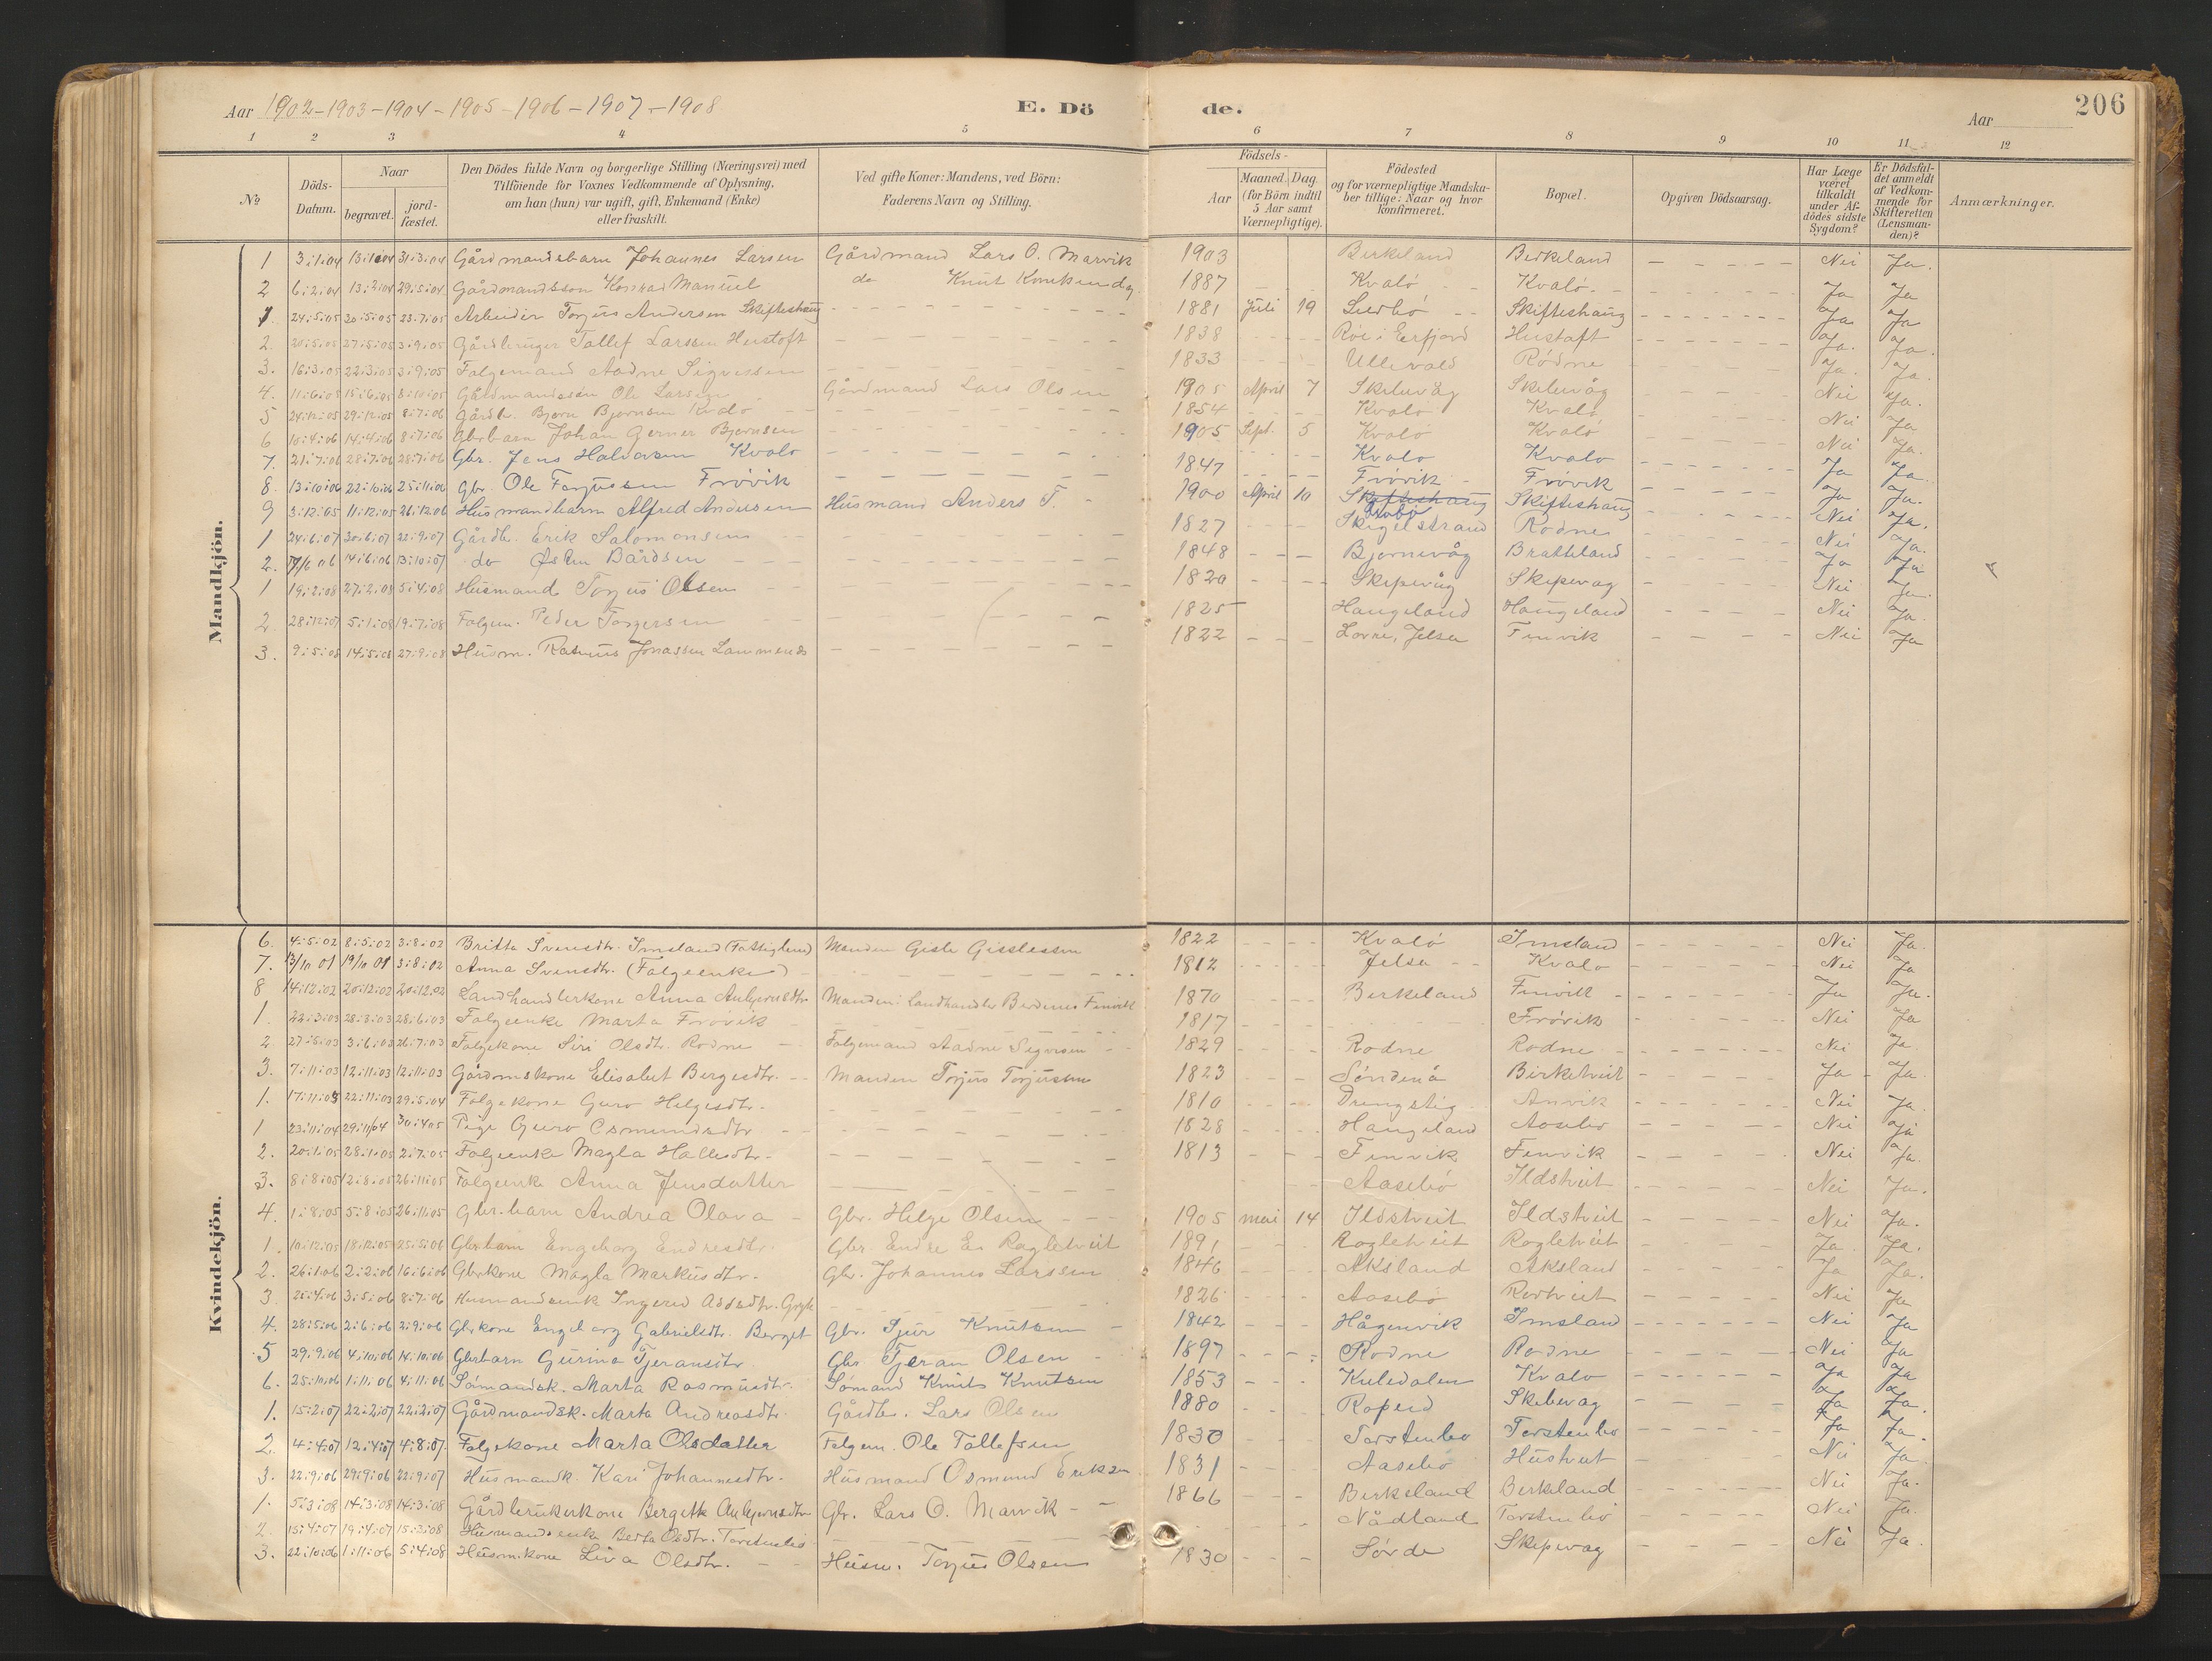 Aar 1902-1903-1904-1905-1906-1907-1908
E. Dö
de.
Aar
206
1 2 3 4 5 6 7 8 9 10 11 12
No
Döds-Datum.
Naar
begravet.
jord-fæstet.
Den Dödes fulde Navn og borgerlige Stilling (Næringsvei) med
Tilföiende for Voxnes Vedkommende af Oplysning,
om han (hun) var ugift, gift, Enkemand (Enke)
eller fraskilt.
Ved gifte Koner: Mandens, ved Börn:
Faderens Navn og Stilling.
Födsels-
Aar
Maaned. Dag.
(for Börn indtil
5 Aar samt
Værnepligtige).
Födested
og for værnepligtige Mandska-
ber tillige: Naar og hvor
konfirmeret.
Bopæl.
Opgiven Dödsaarsag.
Har Læge
været
tilkaldt
under Af-
dödes sidste
Sygdom?
Er Dödsfal-
det anmeldt
af Vedkom-
mende for
Skifteretten
(Lensman-
den)?
Anmærkninger.
Mandkjön.
1 3:1:04 13:1:04 31:3:04 Gårdmandsbarn Johannes Larsen Gårdmand Lars O. Marvik 1903 Birkeland Birkeland Nei Ja.
2 6:2:04 13:2:04 29:5:04 Gårdmandsson Konrad Manuel do Knut 1887 Kvaló Kvaló. Ja Ja
1 24:5:05 30:5:05 23:7:05 Arbeider Torjus Andersen Skifteshaug 1881 Juli 19 Skifteshaug Ja Ja
2. 27:5:05 3:9:05 Gårdbruger Tollef Larssen Hustoft 1838 Roi i Erfjord Hustoft Ja. Ja.
3. 16:3:05 22:3:05 3:9:05 Folgemand Aadne Sigvessen 1833 Ullevold Ródne Ja. Ja.
4. 11:6:05 15:6:05 8:10:05 Gårdmandssón Ole Larsen Gårdmand Lars Olsen 1905 April 7 Skibevåg Skibevåg Nei Ja.
5 24:12:05 29:12:05 8:7:06 Gårdb. Bjorn Bjornsen Kvalo 1854 Kvalo Kvaló Nei Ja
6 10:4:06 14:4:06 8:7:06 Gbrbarn Johan Gerner Bjornsen 1905 Sept. 5 Kvalo Kvaló Nei Ja.
7. 21:7:06 28:7:06 28:7:06 Gbr. Jens Halvorsen Kvalo 1847 Kvalo Kvalo Ja Ja
8. 13:10:06 22:10:06 25:11:06 Gbr. Ole Torjussen Fróvik Fróvik Fróvik Ja Ja.
9 3:12:05 11:12:05 26:12:06 Husmandbarn Alfred Andersen Husmand Anders T. 1900 April 10 Skifteshaug Skifteshaug Nei Ja.
1 24:6:07 30:6:07 22:9:07 Gårdb. Erik Salomonsen 1827 Skigelstrand Rodne Nei Ja.
2. 7/6 06 14:6:06 13:10:07 do Østen Bårdsen 1848 Bjornevåg Brattland Ja Ja
1 19:2:08 27:2:08 5:4:08 Husmand Torjus Olsen 1820 Skipevåg Skipevag Nei Ja.
2. 28:12:07 5:1:08 19:7:08 Folgem. Peder Torgersen 1825 Haugeland Haugeland Nei Ja.
3. 9:5:08 14:5:08 27:9:08 Husm. Rasmus Jonassen 1822 Lovre, Jelsa Finvik Nei Ja
Kvindekjön.
6. 4:5:02 8:5:02 3:8:02 Britta Svensdtr. Imsland (Fattiglem) Manden Gisle Gisslessen 1822 Kvaló Imsland Nei Ja.
7. 13/10 01 19/10 01 3:8:02 Anna Svensdtr. (Folgeenke) 1812 Jelsa Kvalo Nei Ja
8 14:12:02 20:12:02 20:12:02 Landhandlerkone Anna Anbjornsdtr Manden: Landhandler Finvik 1870 Birkeland Finvik Ja Ja.
1. 22:3:03 28:3:03 28:6:03 Folgeenke Marta Fróvik 1817 Fróvik Nei Ja
2 27:5:03 3:6:03 26:7:03 Folgekone Siri Olsdtr. Rodne Folgemand Aadne Sigvesen 1829 Rodne Rodne Nei Ja.
3. 7:11:03 12:11:03 12:11:03 Gårdmskone Elisabet Bergesdtr. Manden Torjus Torjussen 1823 Sóndenå Birketveit Ja Ja.
1. 17:11:03 22:11:03 29:5:04 Folgekone Guro Helgesdtr. 1810 Drengstig Anvik Nei Ja.
1 23:11:04 29:11/04 30:4:05 Pige Guro Osmundsdtr 1828 Haugeland Aasebo Nei Ja
2. 20:1:05 28:1:05 2:7:05 Folgeenke Magla Hallesdtr. 1813 Finvik Finvik Nei Ja.
3. 8:8:05 12:8:05 26:11:05 Folgeenke Anna Jensdatter Aasebó Ildstveit Nei Ja.
4. 1:8:05 5:8:05 26:11:05 Gbr.barn Andrea Olava Gbr. Helge Olsen 1905 mai 14 Ildstveit Ildstveit Nei Ja.
1. 10:12:05 18:12:05 25:5:06 Gbrbarn Engeborg Endresdtr. Gbr. Endre E. Rogletveit 1891 Rogletveit Rogletveit Ja Ja.
2. 26:1:06 2:2:06 16:6:06 Gbrkone Magla Markusdtr. Gbr. Johannes Larssen 1846 Aksland Aksland Ja Ja.
3. 25:4:06 3:5:06 8:7:06 Husmandsenke Ingered 1826 Aasebó Nei Ja
4. 28:5:06 2:6:06 2:9:06 Gbrkone Engeborg Gabrielsdtr. Berget Gbr. Sjur Knutsen 1842 Hågenvik Imsland Nei Ja
5 29:9:06 4:10:06 14:10:06 Gbrbarn Gurina Tjeransdtr. Gbr Tjeran Olsen 1897 Rodne Rodne Nei Ja
6. 25:10:06 1:11:06 4:11:06 Sómandsk. Marta Rasmusdtr. Sómand Knuts Knutsen 1853 Kuledalen Kvalo Ja Ja
1. 15:2:07 22:2:07 22:2:07 Gårdmandsk. Marta Andreasdtr. Gårdbr. Lars Olsen 1880 Ropeid Skibevag Ja Ja.
2. 4:4:07 12:4:07 4:8:07. Folgekone Marta Olsdatter Folgem. Ole Tollefsen 1830 Torstenbo Torstenbo Ja Ja.
3. 22:9:06 29:9:06 22:9:07 Husmandk. Kari Johannesdtr. Husmand Osmund Eriksen 1831 Aasebó Hustveit Nei Ja.
1. 5:3:08 14:3:08 14:3:08 Gårdbrukerkone Bergitte Anbjornsdtr Gbr. Lars O. Marvik 1866 Birkeland Birkeland Nei Ja.
2. 15:4:07 19:4:07 15:3:08 Husmandsenke Berta Olsdtr. Torstenbó Nådland Torstenbó Nei Ja.
3. 22:10:06 1:11:06 5:4:08 Husmkone Liva Olsdtr. Husm. Torjus Olsen 1830 Sórde Skipevag Nei Ja.